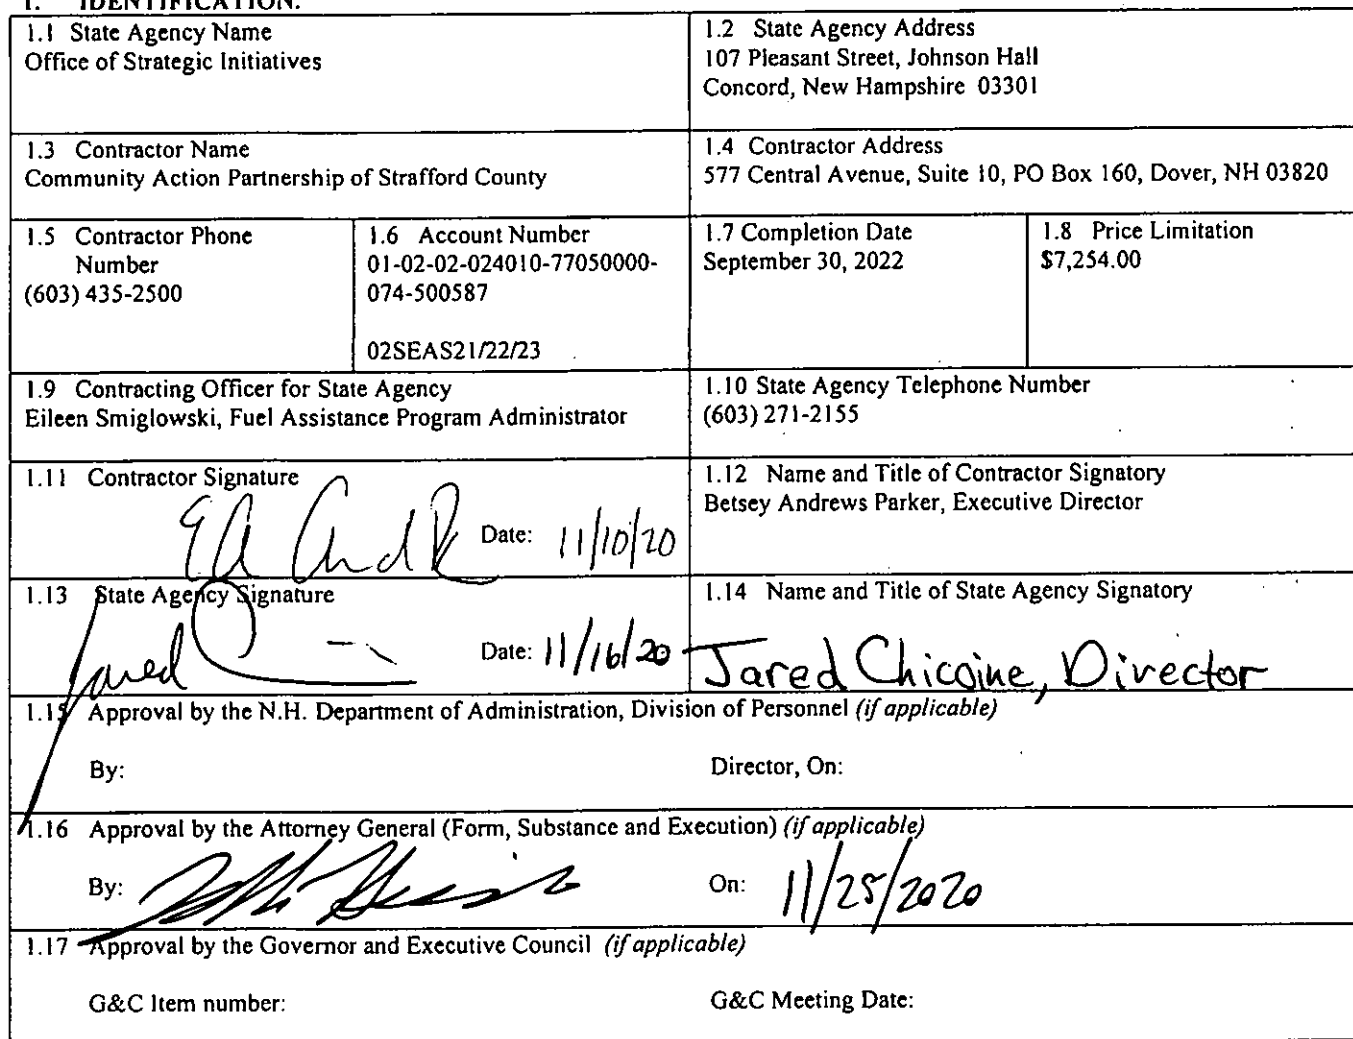 1. IDENTIFICATION.
1.1 State Agency Name
Office of Strategic Initiatives
1.2 State Agency Address
107 Pleasant Street, Johnson Hall
Concord, New Hampshire 03301
1.3 Contractor Name
Community Action Partnership of Strafford County
1.4 Contractor Address
577 Central Avenue, Suite 10, PO Box 160, Dover, NH 03820
1.5 Contractor Phone
Number
(603) 435-2500
1.6 Account Number
01-02-02-024010-77050000-
074-500587
02SEAS21/22/23
1.7 Completion Date
September 30, 2022
1.8 Price Limitation
$7,254.00
1.9 Contracting Officer for State Agency
Eileen Smiglowski, Fuel Assistance Program Administrator
1.10 State Agency Telephone Number
(603) 271-2155
1.11 Contractor Signature
Date: 11/10/20
1.12 Name and Title of Contractor Signatory
Betsey Andrews Parker, Executive Director
1.13 State Agency Signature
Jared
Date: 11/16/20
1.14 Name and Title of State Agency Signatory
Jared Chicoine, Director
1.15 Approval by the N.H. Department of Administration, Division of Personnel (if applicable)
By:
Director, On:
1.16 Approval by the Attorney General (Form, Substance and Execution) (if applicable)
By:
On: 11/25/2020
1.17 Approval by the Governor and Executive Council (if applicable)
G&C Item number:
G&C Meeting Date: